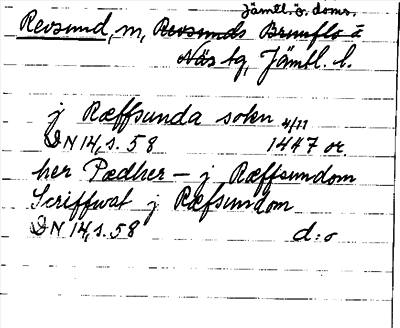 Jämtl. ö. doms.
Revsund, m, Revsunds Brunflo å
Näs tg, Jämtl. l.
j Ræffsunda sokn 4/11
DN 14, s. 58 1447 or.
her Pædher – j Ræffsundom
Scriffwat j Ræfsundom
DN 14, s. 58 d:o